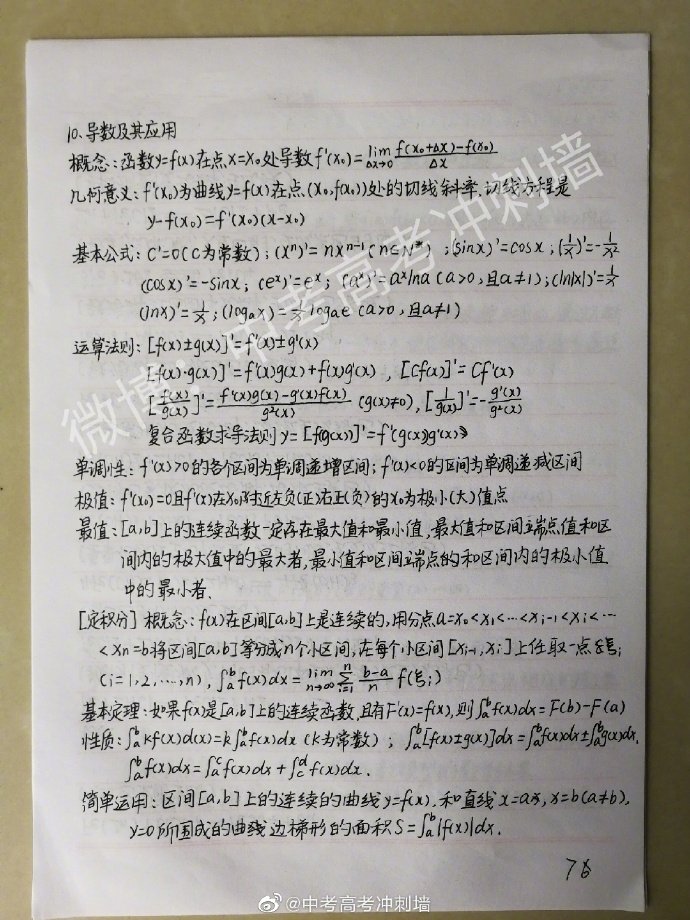 10、导数及其应用
概念:函数y=f(x)在点x=x₀处导数f'(x₀)=lim Δx→0 f(x₀+Δx)-f(x₀)/Δx
几何意义:f'(x₀)为曲线y=f(x)在点(x₀,f(x₀))处的切线斜率,切线方程是
y-f(x₀)=f'(x₀)(x-x₀)
基本公式:C'=0(C为常数);(xⁿ)'=nxⁿ⁻¹(n∈N*);(sinx)'=cosx;(1/x)'=-1/x²
(cosx)'=-sinx;(eˣ)'=eˣ;(aˣ)'=aˣlna(a>0,且a≠1);(ln|x|)'=1/x
(lnx)'=1/x;(logₐx)=1/x logₐe(a>0,且a≠1)
运算法则:[f(x)±g(x)]'=f'(x)±g'(x)
[f(x)·g(x)]'=f'(x)g(x)+f(x)g'(x),[Cf(x)]'=Cf'(x)
[f(x)/g(x)]'=f'(x)g(x)-g'(x)f(x)/g²(x) (g(x)≠0),[1/g(x)]'=-g'(x)/g²(x)
复合函数求导法则y=[f(g(x))]'=f'(g(x))g'(x)
单调性:f'(x)>0的各个区间为单调递增区间;f'(x)<0的区间为单调递减区间
极值:f'(x₀)=0且f'(x)在x₀附近左负(正)右正(负)的x₀为极小(大)值点
最值:[a,b]上的连续函数一定存在最大值和最小值,最大值和区间端点值和区
间内的极大值中的最大者,最小值和区间端点的和区间内的极小值
中的最小者.
[定积分]概念:f(x)在区间[a,b]上是连续的,用分点a=x₀<x₁<…<xᵢ₋₁<xᵢ<…
<xn=b将区间[a,b]等分成n个小区间,在每个小区间[xᵢ₋₁,xᵢ]上任取一点ξᵢ
(i=1,2,…,n),∫ₐᵇf(x)dx=lim n→∞ Σ i=1 n b-a/n f(ξᵢ)
基本定理:如果f(x)是[a,b]上的连续函数,且有F'(x)=f(x),则∫ₐᵇf(x)dx=F(b)-F(a)
性质:∫ₐᵇkf(x)d(x)=k∫ₐᵇf(x)dx(k为常数);∫ₐᵇ[f(x)±g(x)]dx=∫ₐᵇf(x)dx±∫ₐᵇg(x)dx.
∫ₐᵇf(x)dx=∫ₐᶜf(x)dx+∫꜀ᵈf(x)dx.
简单运用:区间[a,b]上的连续的曲线y=f(x),和直线x=a,x=b(a≠b),
y=0所围成的曲线边梯形的面积S=∫ₐᵇ|f(x)|dx.
76
微博:中考高考冲刺墙
@中考高考冲刺墙